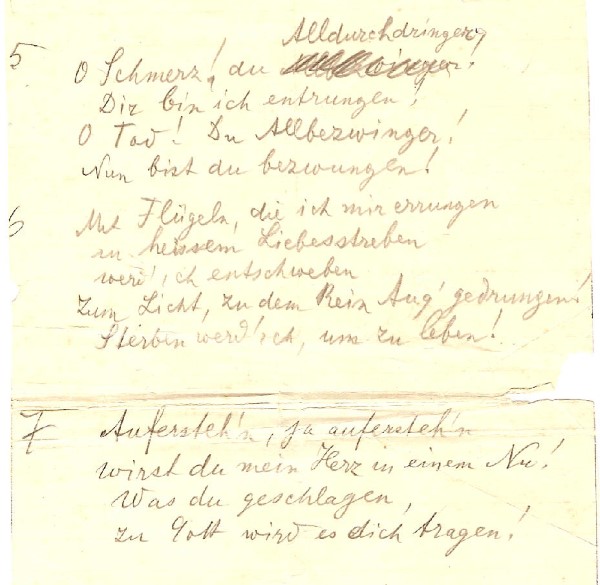 Alldurchdringer,
5 O Schmerz! du !
Dir bin ich entrungen!
O Tod! Du Allbezwinger!
Nun bist du bezwungen!
6 Mit Flügeln, die ich mir errungen
in heissem Liebesstreben
werd' ich entschweben
Zum Licht, zu dem Kein Aug' gedrungen!
Sterben werd' ich, um zu leben!
7 Aufersteh'n, ja aufersteh'n
wirst du mein Herz in einem Nu!
Was du geschlagen,
zu Gott wird es dich tragen!